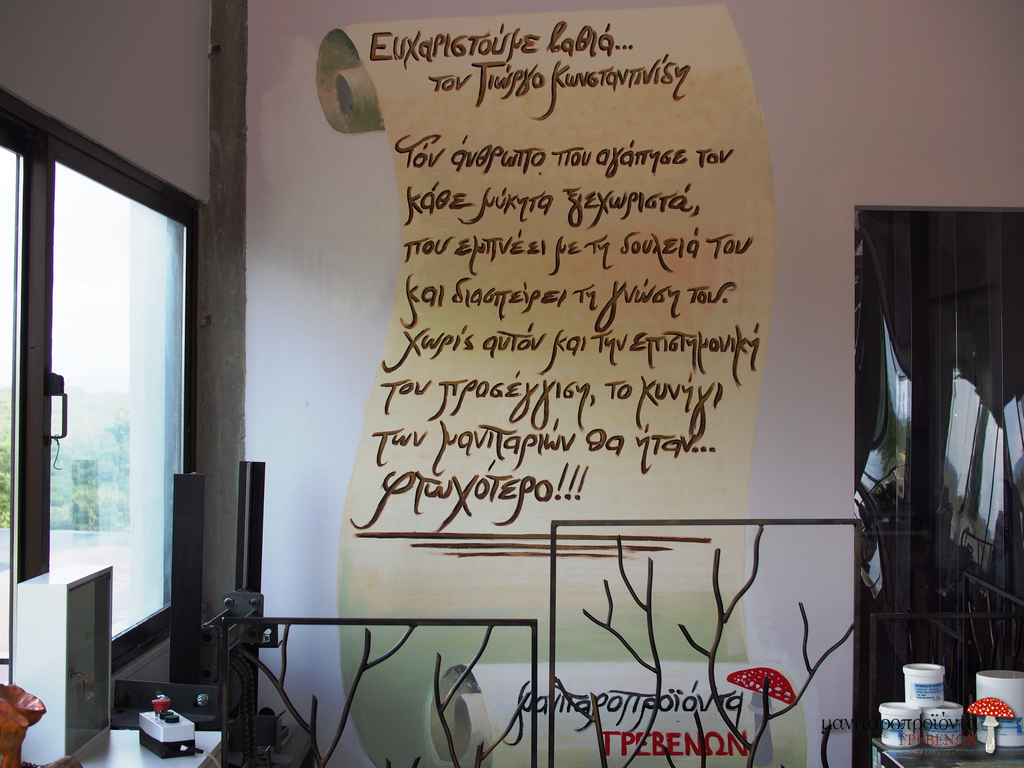 Ευχαριστούμε βαθιά...
τον Γιώργο Κωνσταντινίδη
Τόν άνθρωπο που αγάπησε τον
κάθε μύκητα ξεχωριστά,
που εμπνέει με τη δουλειά του
και διασπείρει τη γνώση του.
Χωρίς αυτόν και την επιστημονική
του προσέγγιση, το κυνήγι
των μανιταριών θα ήταν...
φτωχότερο!!!
μανιταροπροϊόντα
ΓΡΕΒΕΝΩΝ
μανιταροπροϊόντα
ΓΡΕΒΕΝΩΝ